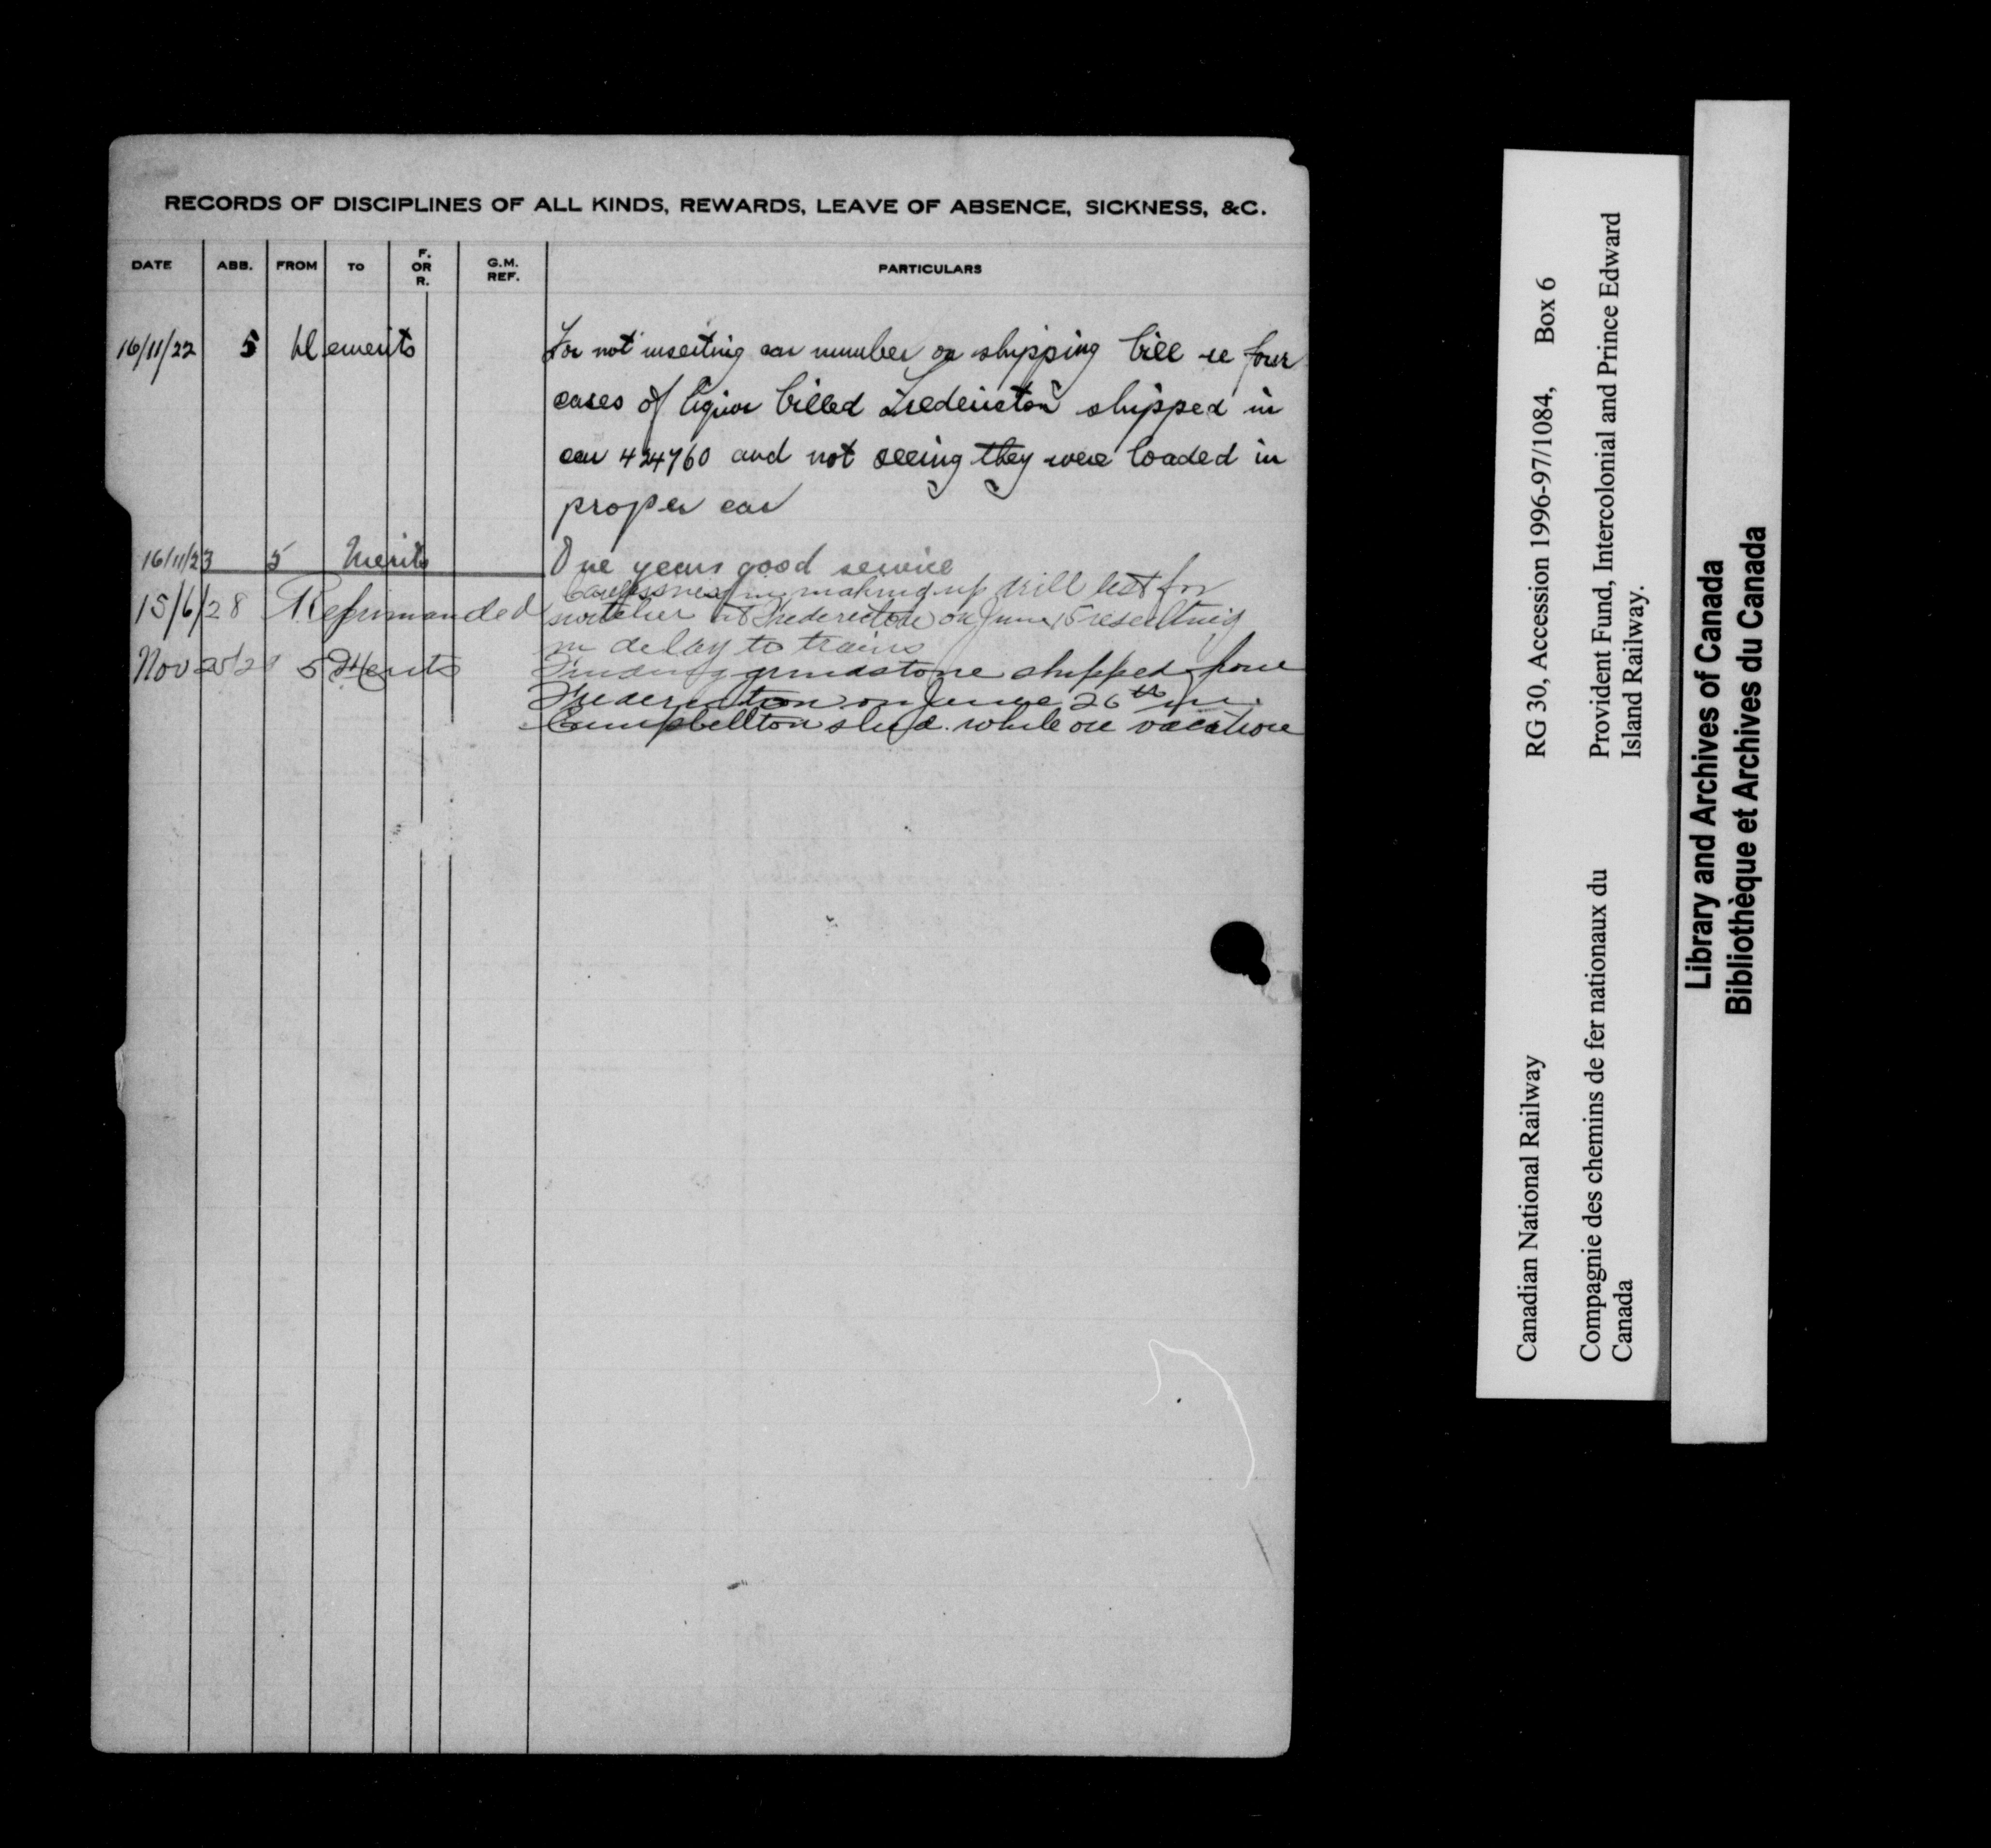 RECORDS OF DISCIPLINES OF ALL KINDS, REWARDS, LEAVE OF ABSENCE, SICKNESS, &C.
DATE ABB. FROM TO F. OR R. G.M. REF. PARTICULARS
16/11/22 5 Demerits For not inserting car number on shipping bill re four
cases of liquor billed Fredericton shipped in
car 424760 and not seeing they were loaded in
proper car
16/11/23 5 Merits One years good service
15/6/28 Reprimanded Carelessness in making up drill list for
switcher at Fredericton on June 15 resulting
in delay to trains
Nov 25/28 5 Merits Finding grindstone shipped from
Fredericton on June 26th in
Campbellton shed while on vacation
Canadian National Railway RG 30, Accession 1996-97/1084, Box 6
Compagnie des chemins de fer nationaux du
Canada
Provident Fund, Intercolonial and Prince Edward
Island Railway.
Library and Archives of Canada
Bibliothèque et Archives du Canada